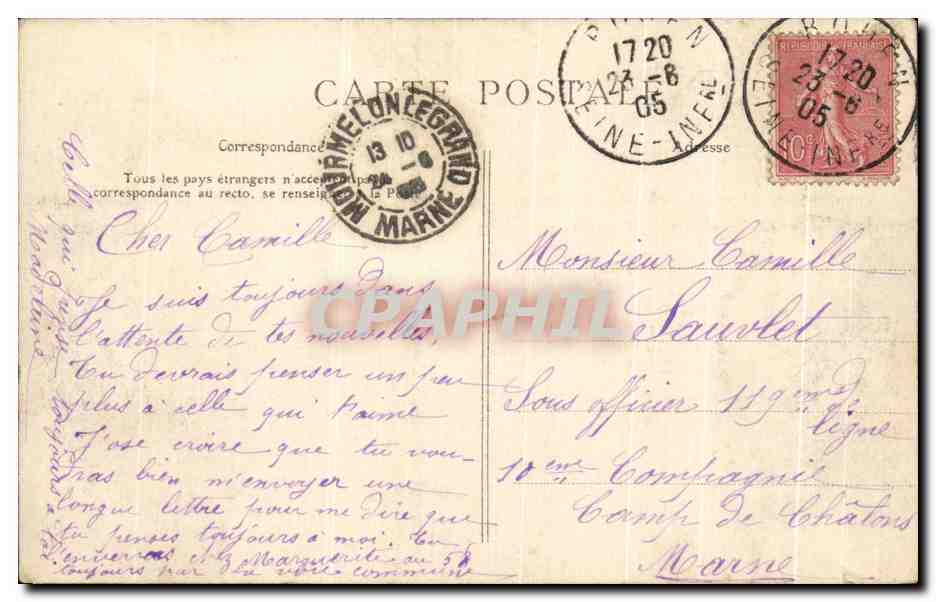 CARTE POSTALE
Correspondance
Adresse
Tous les pays étrangers n'acceptent pas
correspondance au recto, se renseigner la P
ROUEN
17 20
23 -6
05
SEINE-INFRE
ROUEN
17 20
23 -6
05
SEINE-INFRE
REPUBLIQUE FRANÇAISE
10c
MOURMELON LE GRAND
13 10
24 -6
MARNE
CPAPHIL
Cher Camille
Je suis toujours dans
l'attente de tes nouvelles,
tu devrais penser un peu
plus à celle qui t'aime
J'ose croire que tu vou-
dras bien m'envoyer une
longue lettre pour me dire que
tu penses toujours à moi. Tu
l'enverras chez Marguerite au 51
toujours par la voie commune
Celle qui pense toujours à toi
Madeleine
Monsieur Camille
Sauvlet
Sous officier 119ème de
ligne
10eme Compagnie
Camp de Châlons
Marne